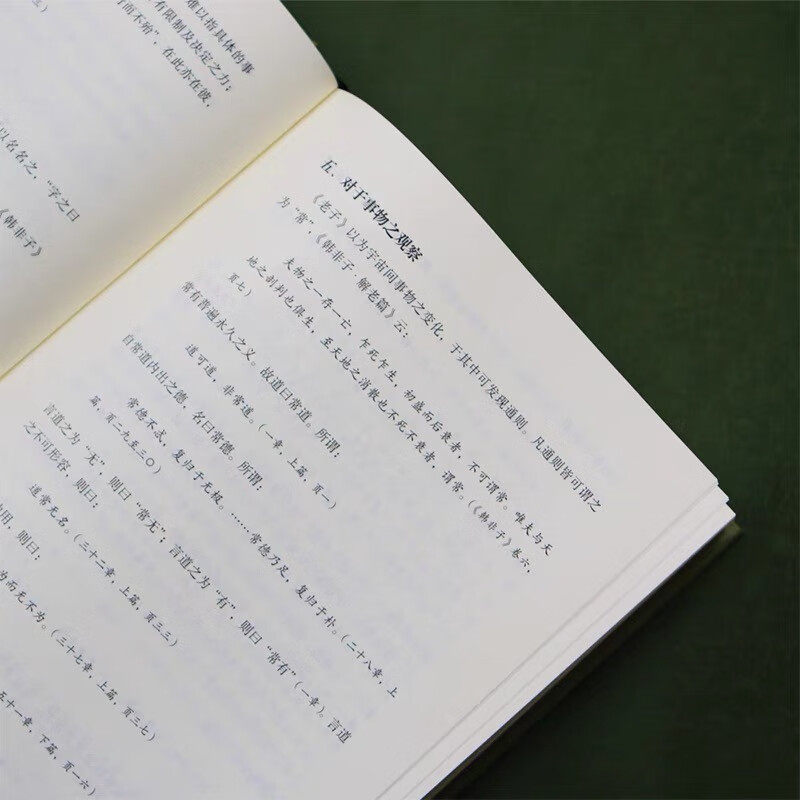 难以指具体的事
有限制及决定之力；
而不殆”，在此亦在彼，
以名名之，“字之曰
《韩非子》
五、对于事物之观察
《老子》以为宇宙间事物之变化，于其中可发现通则。凡通则皆可谓之
为“常”，《韩非子·解老篇》云：
夫物之一存一亡，乍死乍生，初盛而后衰者，不可谓常。唯夫与天
地之剖判也俱生，至天地之消散也不死不衰者，谓常。（《韩非子》卷六，
页七）
常有普遍永久之义。故道曰常道。所谓：
道可道，非常道。（一章，上篇，页一）
自常道内出之德，名曰常德。所谓：
常德不忒，复归于无极。……常德乃足，复归于朴。（二十八章，上
篇，页二九至三〇）
言道之为“无”，则曰“常无”；言道之为“有”，则曰“常有”（一章）。言道
之不可形容，则曰：
道常无名。（三十二章，上篇，页三三）
用，则曰：
为而无不为。（三十七章，上篇，页三七）
五十一章，下篇，页一六）